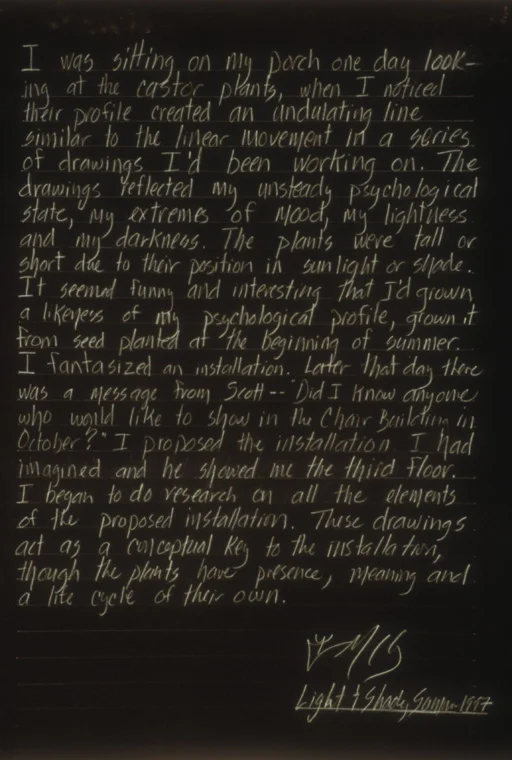 I was sitting on my porch one day look-
ing at the castor plants, when I noticed
their profile created an undulating line
similar to the linear movement in a series
of drawings I'd been working on. The
drawings reflected my unsteady psychological
state, my extremes of mood, my lightness
and my darkness. The plants were tall or
short due to their position in sunlight or shade.
It seemed funny and interesting that I'd grown
a likeness of my psychological profile, grown it
from seed planted at the beginning of summer.
I fantasized an installation. Later that day there
was a message from Scott -- "Did I know anyone
who would like to show in the Chair Building in
October?" I proposed the installation I had
imagined and he showed me the third floor.
I began to do research on all the elements
of the proposed installation. These drawings
act as a conceptual key to the installation,
though the plants have presence, meaning and
a life cycle of their own.
Light & Shade, Summer 1997